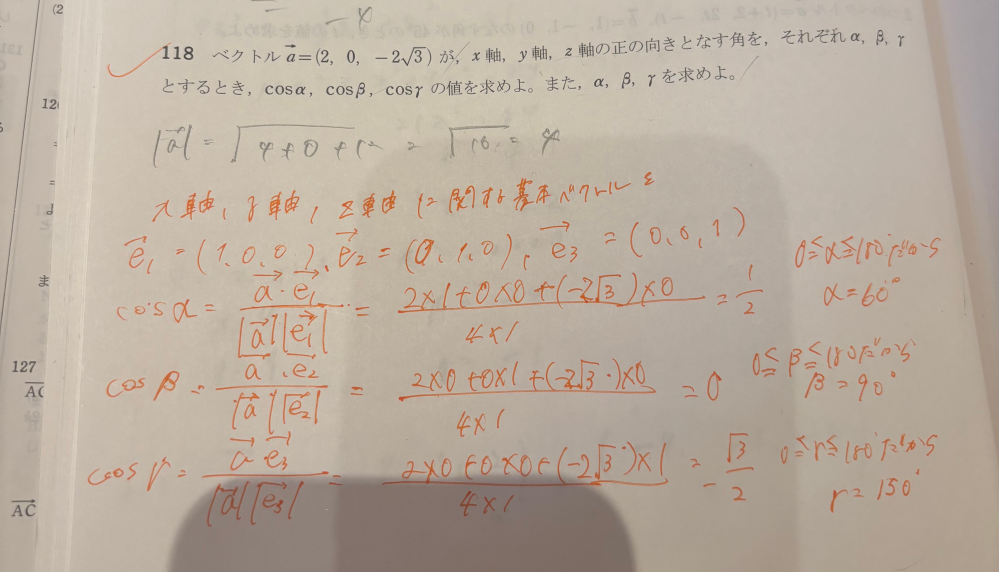 (2
118 ベクトル a⃗=(2, 0, −2√3) が, x軸, y軸, z軸の正の向きとなす角を, それぞれα, β, γ
とするとき, cosα, cosβ, cosγ の値を求めよ。また, α, β, γ を求めよ。
|a⃗| = √4+0+12 = √16 = 4
x軸, y軸, z軸に関する基本ベクトルを
e⃗₁ = (1,0,0), e⃗₂ = (0,1,0), e⃗₃ = (0,0,1)
cosα = a⃗・e⃗₁ / |a⃗||e⃗₁| = 2×1+0×0+(−2√3)×0 / 4×1 = 1/2 0≦α≦180°だから α=60°
cosβ = a⃗・e⃗₂ / |a⃗||e⃗₂| = 2×0+0×1+(−2√3)×0 / 4×1 = 0 0≦β≦180だから β=90°
cosγ = a⃗ e⃗₃ / |a⃗||e⃗₃| = 2×0+0×0+(−2√3)×1 / 4×1 = −√3/2 0≦γ≦180°だから γ=150°
127
AC
AC